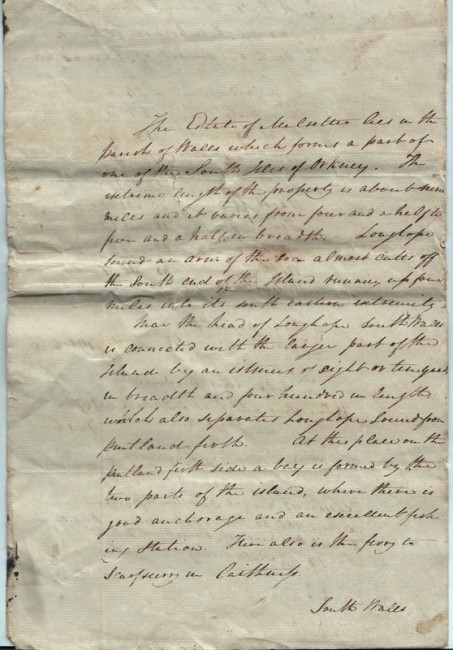 The Estate of Melsetter lies in the
Parish of Walls which forms a part of
one of the South Isles of Orkney. The
extreme length of the property is about nine
miles and it varies from four and a half to
five and a half in breadth. Longhope
sound an arm of the sea almost cutts off
the South end of the Island running up four
miles into its south eastern extremity
Near the head of Longhope South Walls
is connected with the larger part of the
Island by an istmus of eight or ten yards
in breadth and four hundred in length
which also separates Longhope Sound from
pentland firth. At this place on the
pentland firth side a bay is formed by the
two parts of the island, where there is
good anchorage and an excellent fish
ing station. Here also is the ferry to
Scarfserry in Caithness
South Walls